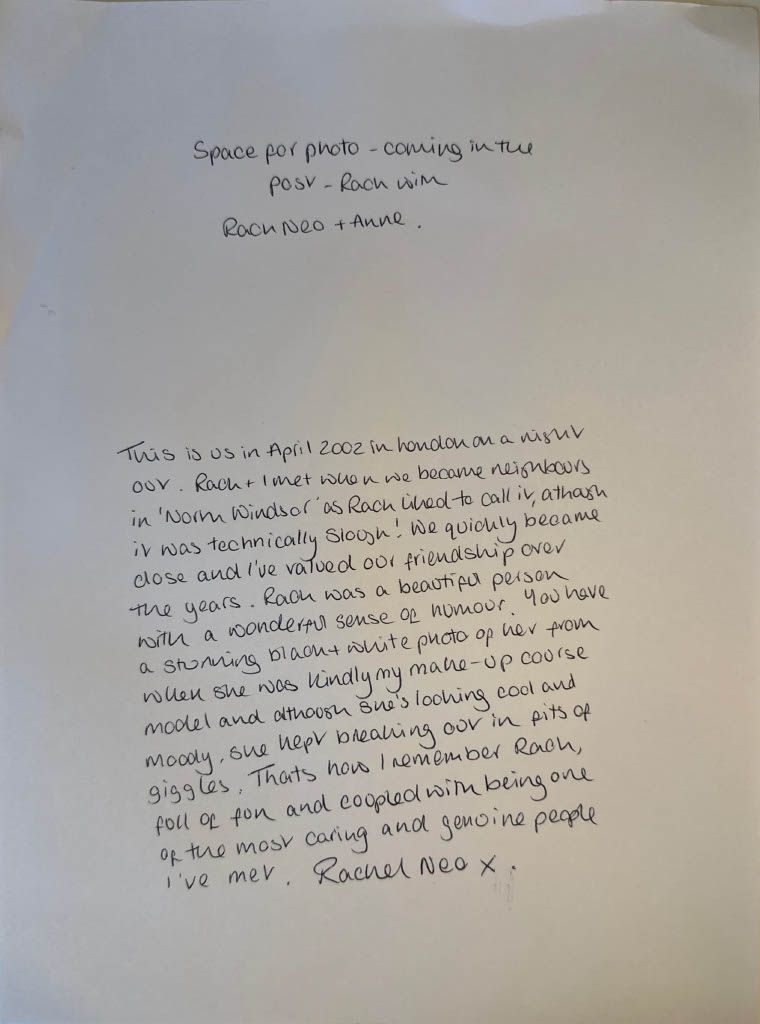 Space for photo - coming in the
post - Rach with
Rach Neo + Anne.
This is us in April 2002 in London on a night
out. Rach + I met when we became neighbours
in 'North Windsor' as Rach liked to call it, although
it was technically Slough! We quickly became
close and I've valued our friendship over
the years. Rach was a beautiful person
with a wonderful sense of humour. You have
a stunning black + white photo of her from
when she was kindly my make-up course
model and although she's looking cool and
moody, she kept breaking out in fits of
giggles. Thats how I remember Rach,
full of fun and coupled with being one
of the most caring and genuine people
I've met. Rachel Neo x.